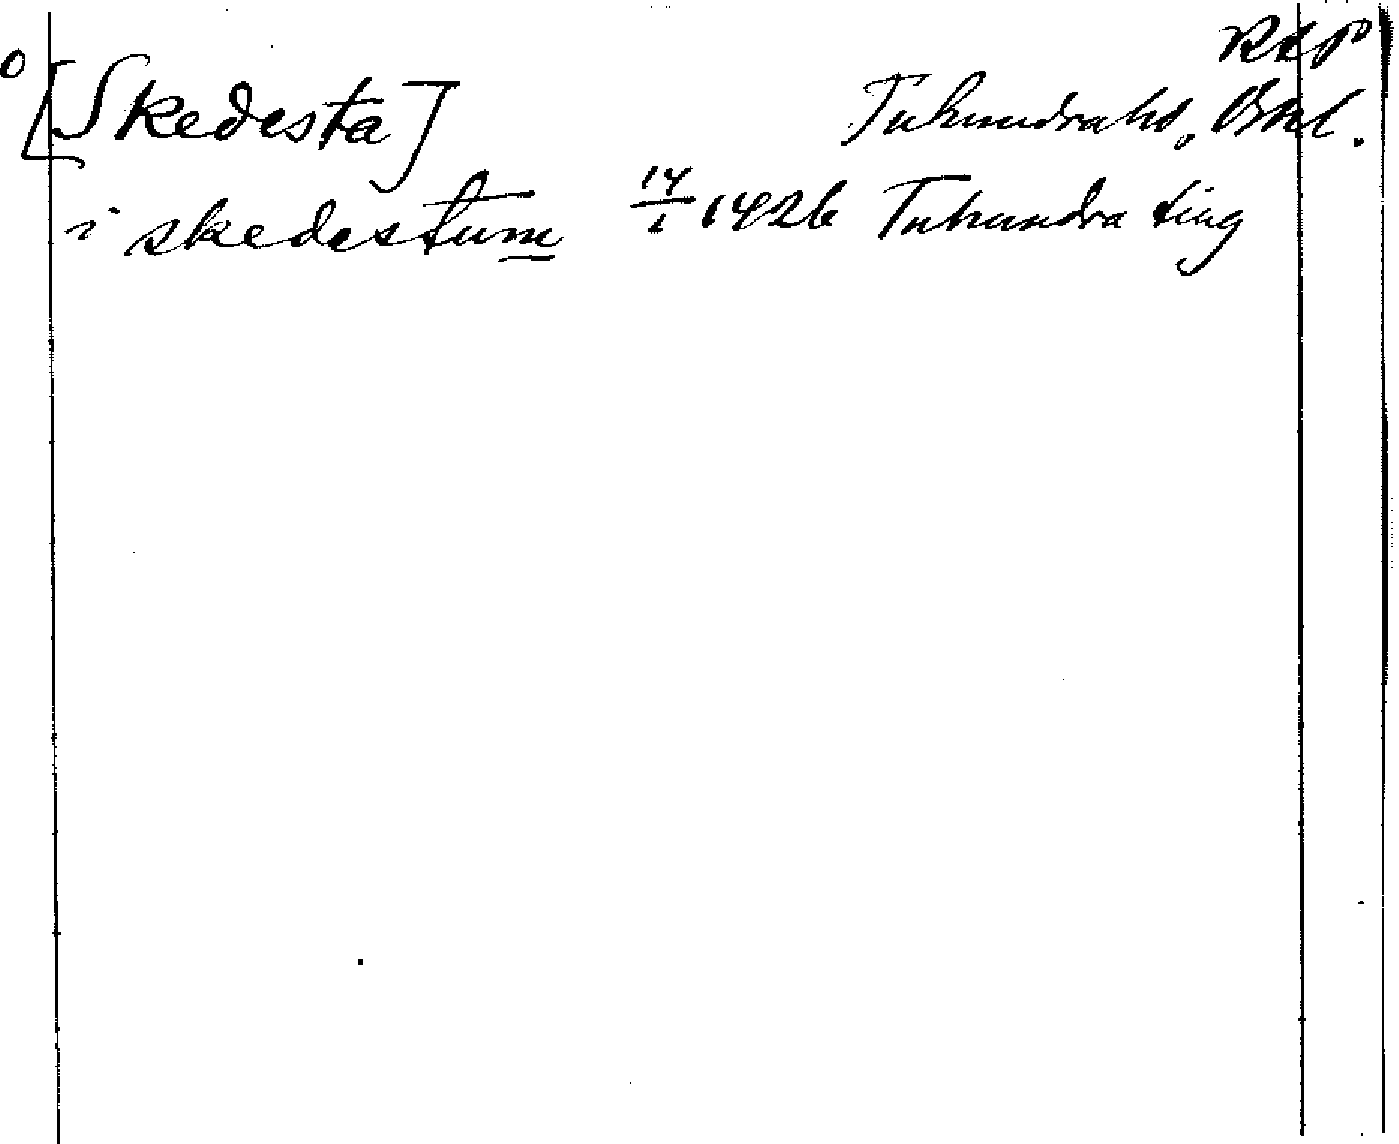 RAP
o [Skedesta] Tuhundrahd, Östl.
i skedestum 14/1 1426 Tuhundra ting